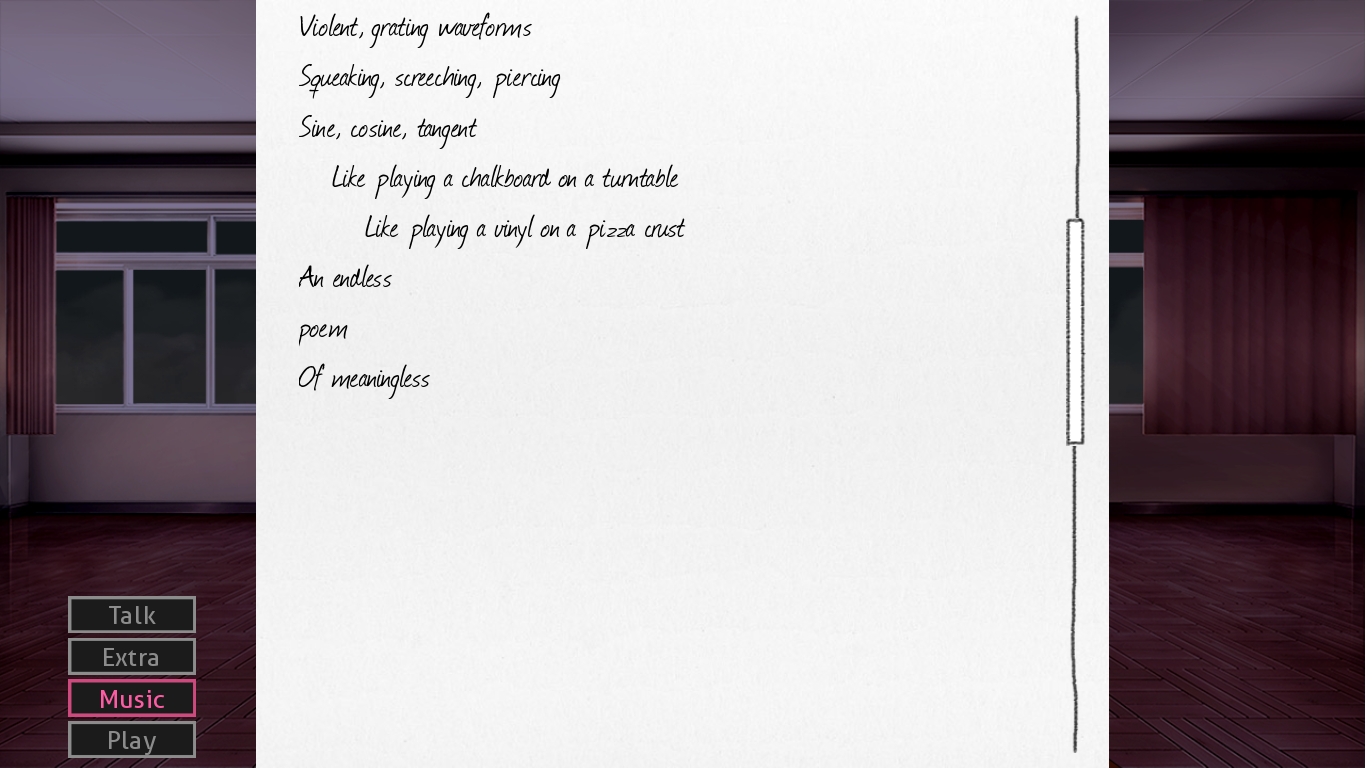 Violent, grating waveforms
Squeaking, screeching, piercing
Sine, cosine, tangent
Like playing a chalkboard on a turntable
Like playing a vinyl on a pizza crust
An endless
poem
Of meaningless
Talk
Extra
Music
Play